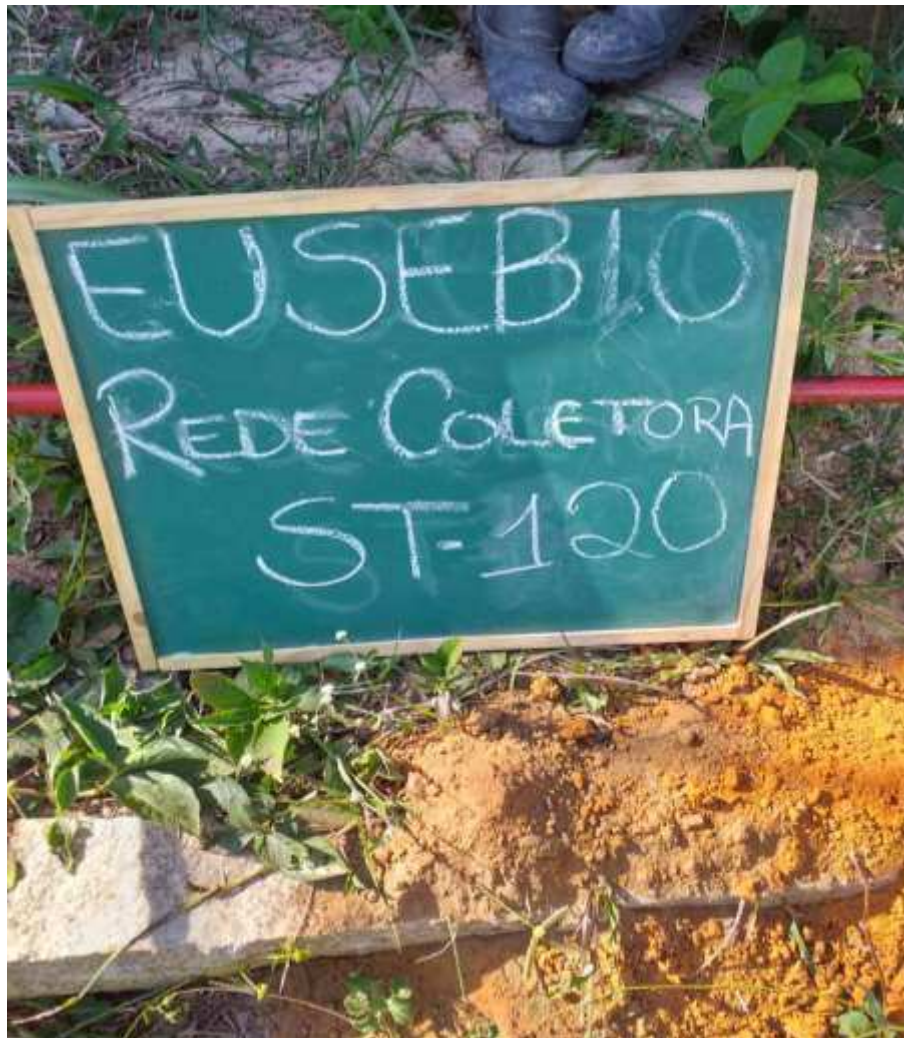 EUSEBIO
REDE COLETORA
ST-120